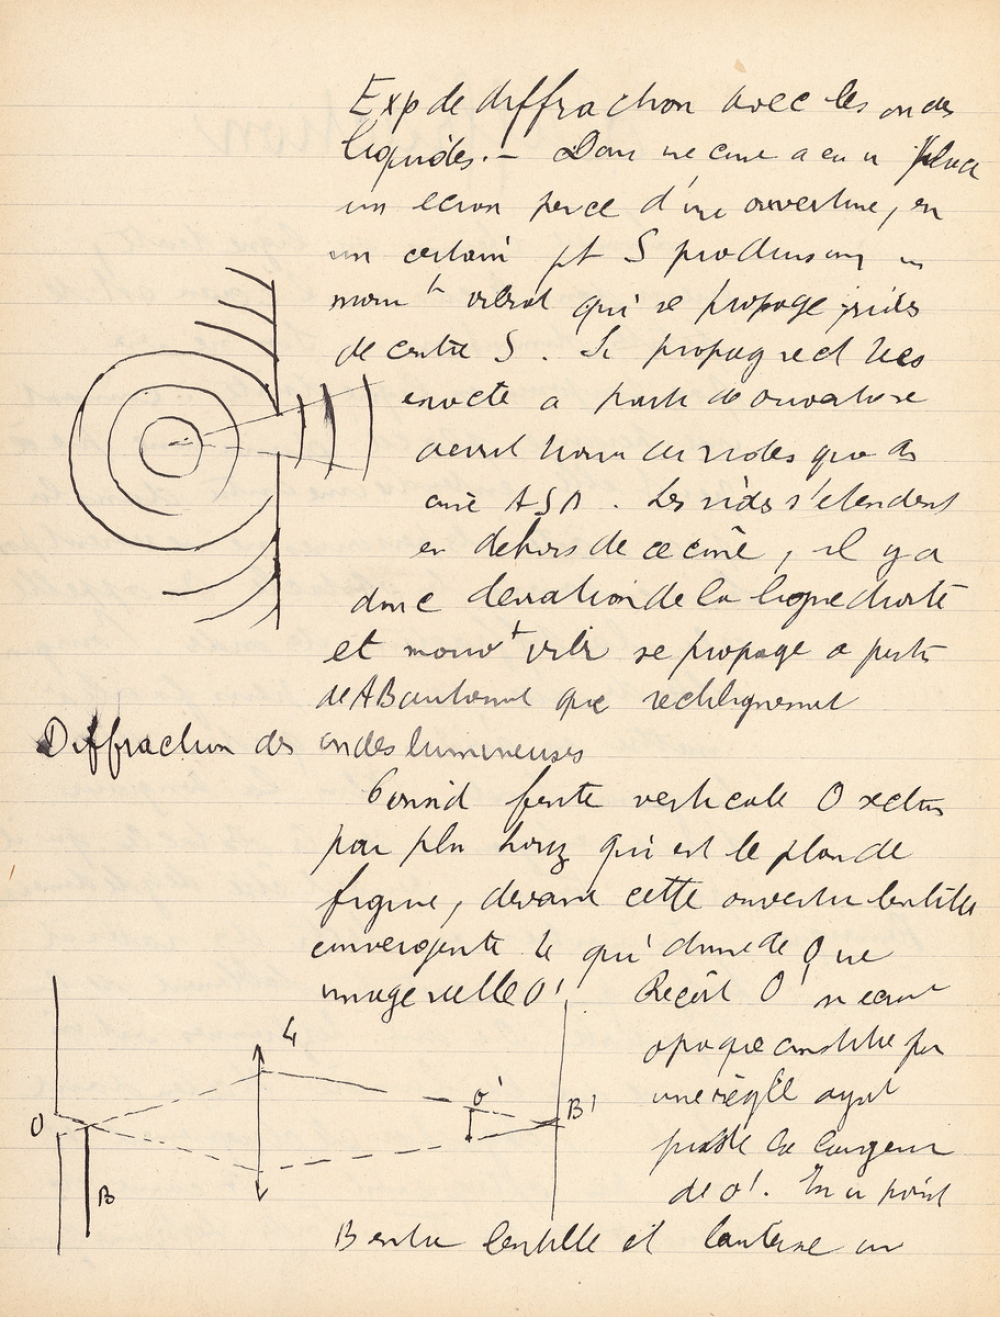 Exp de diffraction avec les ondes
liquides. - Dans une cuve a eau on place
un ecran percé d'une ouverture, en
un certain pt S produisons un
mouvt vibrat qui se propage rides
de centre S. Si propag rect
exacte a partir de ouverture
devrait des rides que ds
cône ASB. Les rides s'etendent
en dehors de ce cône, il y a
donc deviation de la ligne droite
et mouvt vibr se propage a partir
de AB autrement que rectilignement
Diffraction des ondes lumineuses
Consid fente verticale O
par plan horiz qui est le plan de
figure, devant cette ouverture lentille
convergente L qui donne de O une
image réelle O'. Reçoit O' sur ecran
opaque constitué par
une règle ayant
juste la largeur
de O'. En un point
B entre lentille et lanterne un
L
O
B
O'
B'